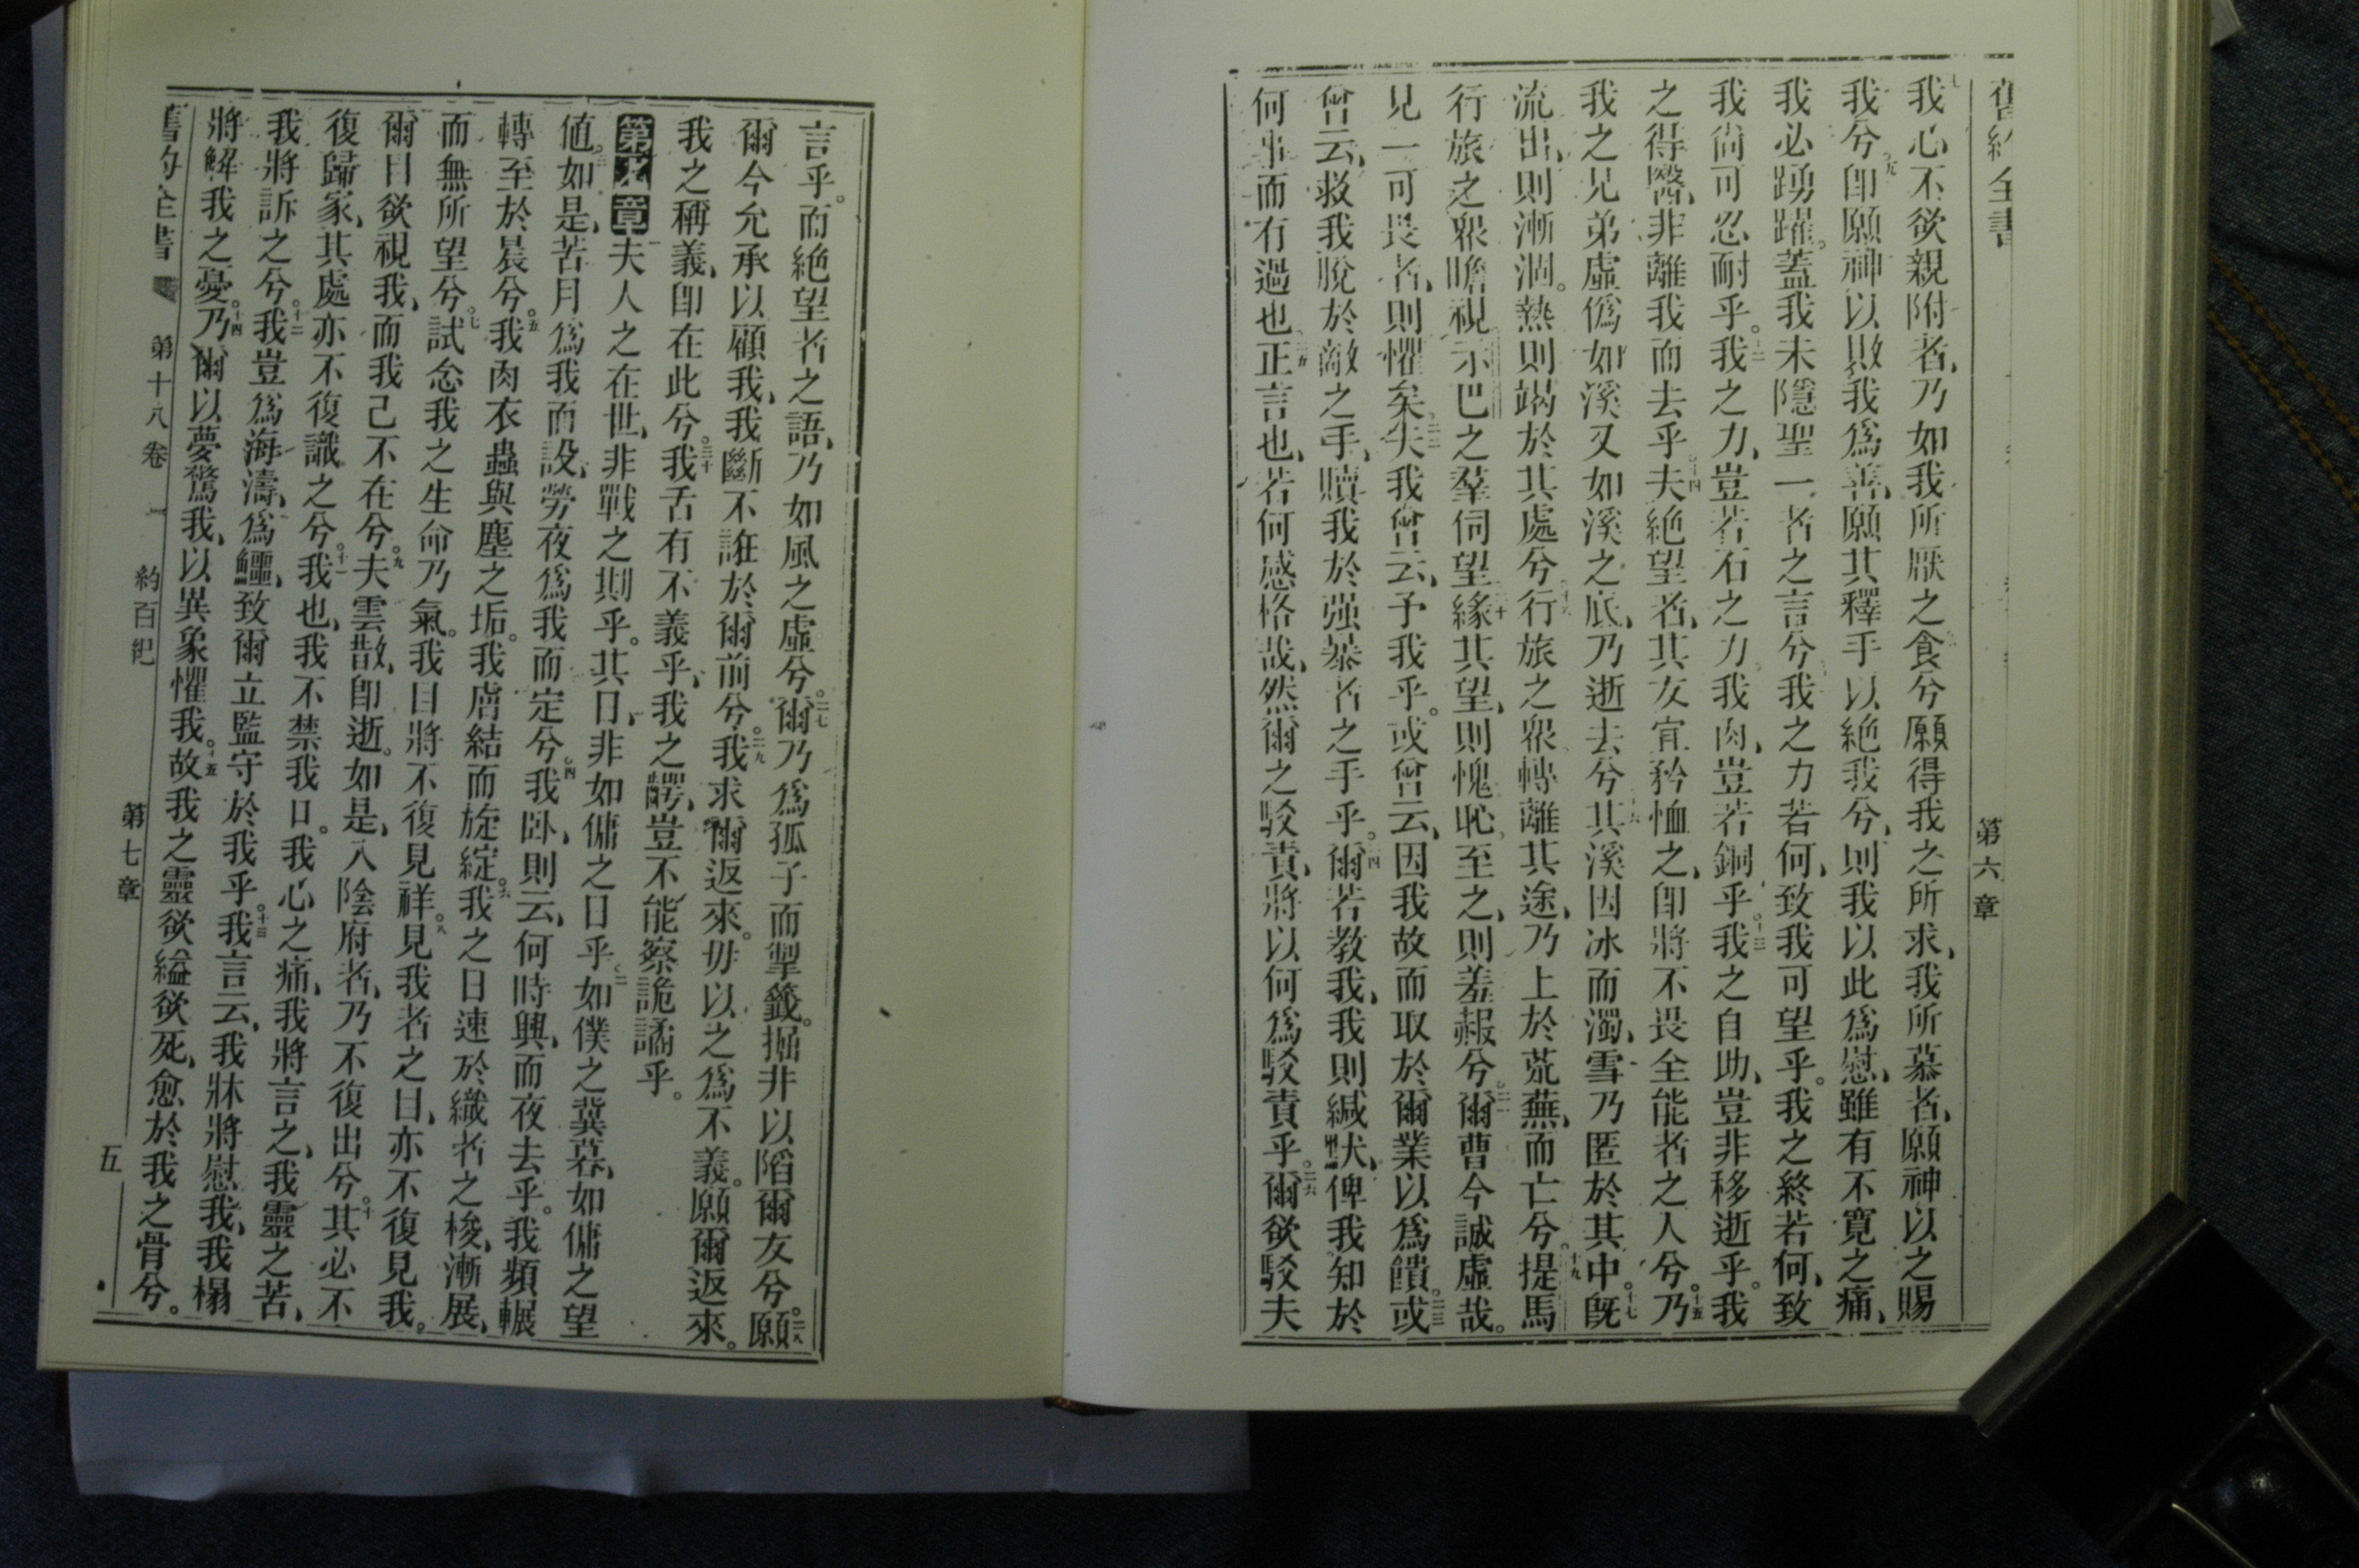 舊約全書 第六章
我心不欲親附者、乃如我所厭之食兮願得我之所求、我所慕者、願神以之賜
我兮、九卽願神以敗我爲善、願其釋手以絕我兮、則我以此爲慰、雖有不寬之痛、
我必踴躍。蓋我未隱聖一者之言兮我之力若何、致我可望乎。我之終若何、致
我尙可忍耐乎。十二我之力、豈若石之力、我肉、豈若銅乎。十三我之自助、豈非移逝乎。我
之得醫、非離我而去乎十四夫絕望者、其友宜矜恤之、卽將不畏全能者之人兮。十五乃
我之兄弟虛僞如溪又如溪之底、乃逝去兮十六其溪因冰而濁、雪乃匿於其中。十七旣
流出、則漸涸。熱則竭於其處兮十八行旅之衆、轉離其途、乃上於荒蕪、而亡兮。十九提馬
行旅之衆瞻視示巴之羣伺望二十緣其望、則愧恥。至之、則羞赧兮二一爾曹今誠虛哉。
見一可畏者、則懼矣。二二夫我曾云、予我乎。或曾云、因我故而取於爾業以爲饋。二三或
曾云、救我脫於敵之手、贖我於强暴者之手乎。二四爾若敎我、我則緘默、俾我知於
何事而有過也。二五正言也、若何感格哉、然爾之駁責、將以何爲駁責乎。二六爾欲駁夫
言乎。而絕望者之語、乃如風之虛兮。二七爾乃爲孤子而掣籤。掘阱以陷爾友兮。二八願
爾今允承以顧我、我斷不誑於爾前兮。二九我求爾返來。毋以之爲不義。願爾返來。
我之稱義、卽在此兮。三十我舌有不義乎、我之齶、豈不能察詭譎乎。
第七章一夫人之在世、非戰之期乎。其日、非如傭之日乎。二如僕之冀暮、如傭之望
値。三如是、苦月爲我而設、勞夜爲我而定兮。四我臥、則云、何時興、而夜去乎。我頻輾
轉至於晨兮。五我肉衣蟲與塵之垢。我膚結而旋綻。六我之日速於織者之梭、漸展、
而無所望兮。七試念我之生命乃氣。我目將不復見祥。八見我者之目、亦不復見我。
爾目欲視我、而我已不在兮。九夫雲散、卽逝。如是、入陰府者、乃不復出兮。十其必不
復歸家、其處亦不復識之兮。十一我也、我不禁我口。我心之痛、我將言之、我靈之苦、
我將訴之兮。十二我豈爲海濤、爲鱷、致爾立監守於我乎。十三我言云、我牀將慰我、我榻
將解我之憂。十四乃爾以夢驚我、以異象懼我。十五故我之靈欲縊欲死、愈於我之骨兮。
第十八卷 約百紀 第七章 五